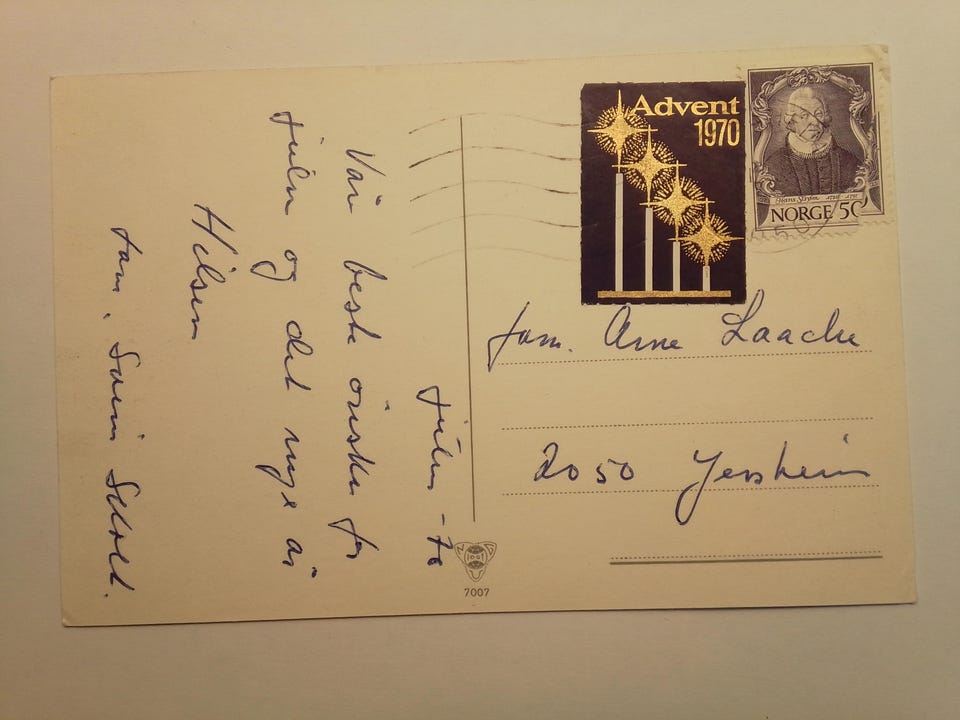 Julen -70
Vår beste ønsker for
julen og det nye år
Hilsen
fam.
Advent
1970
Hans Strøm 1726-1797
NORGE 50
fam. Arne Laache
2050 Jessheim
7007